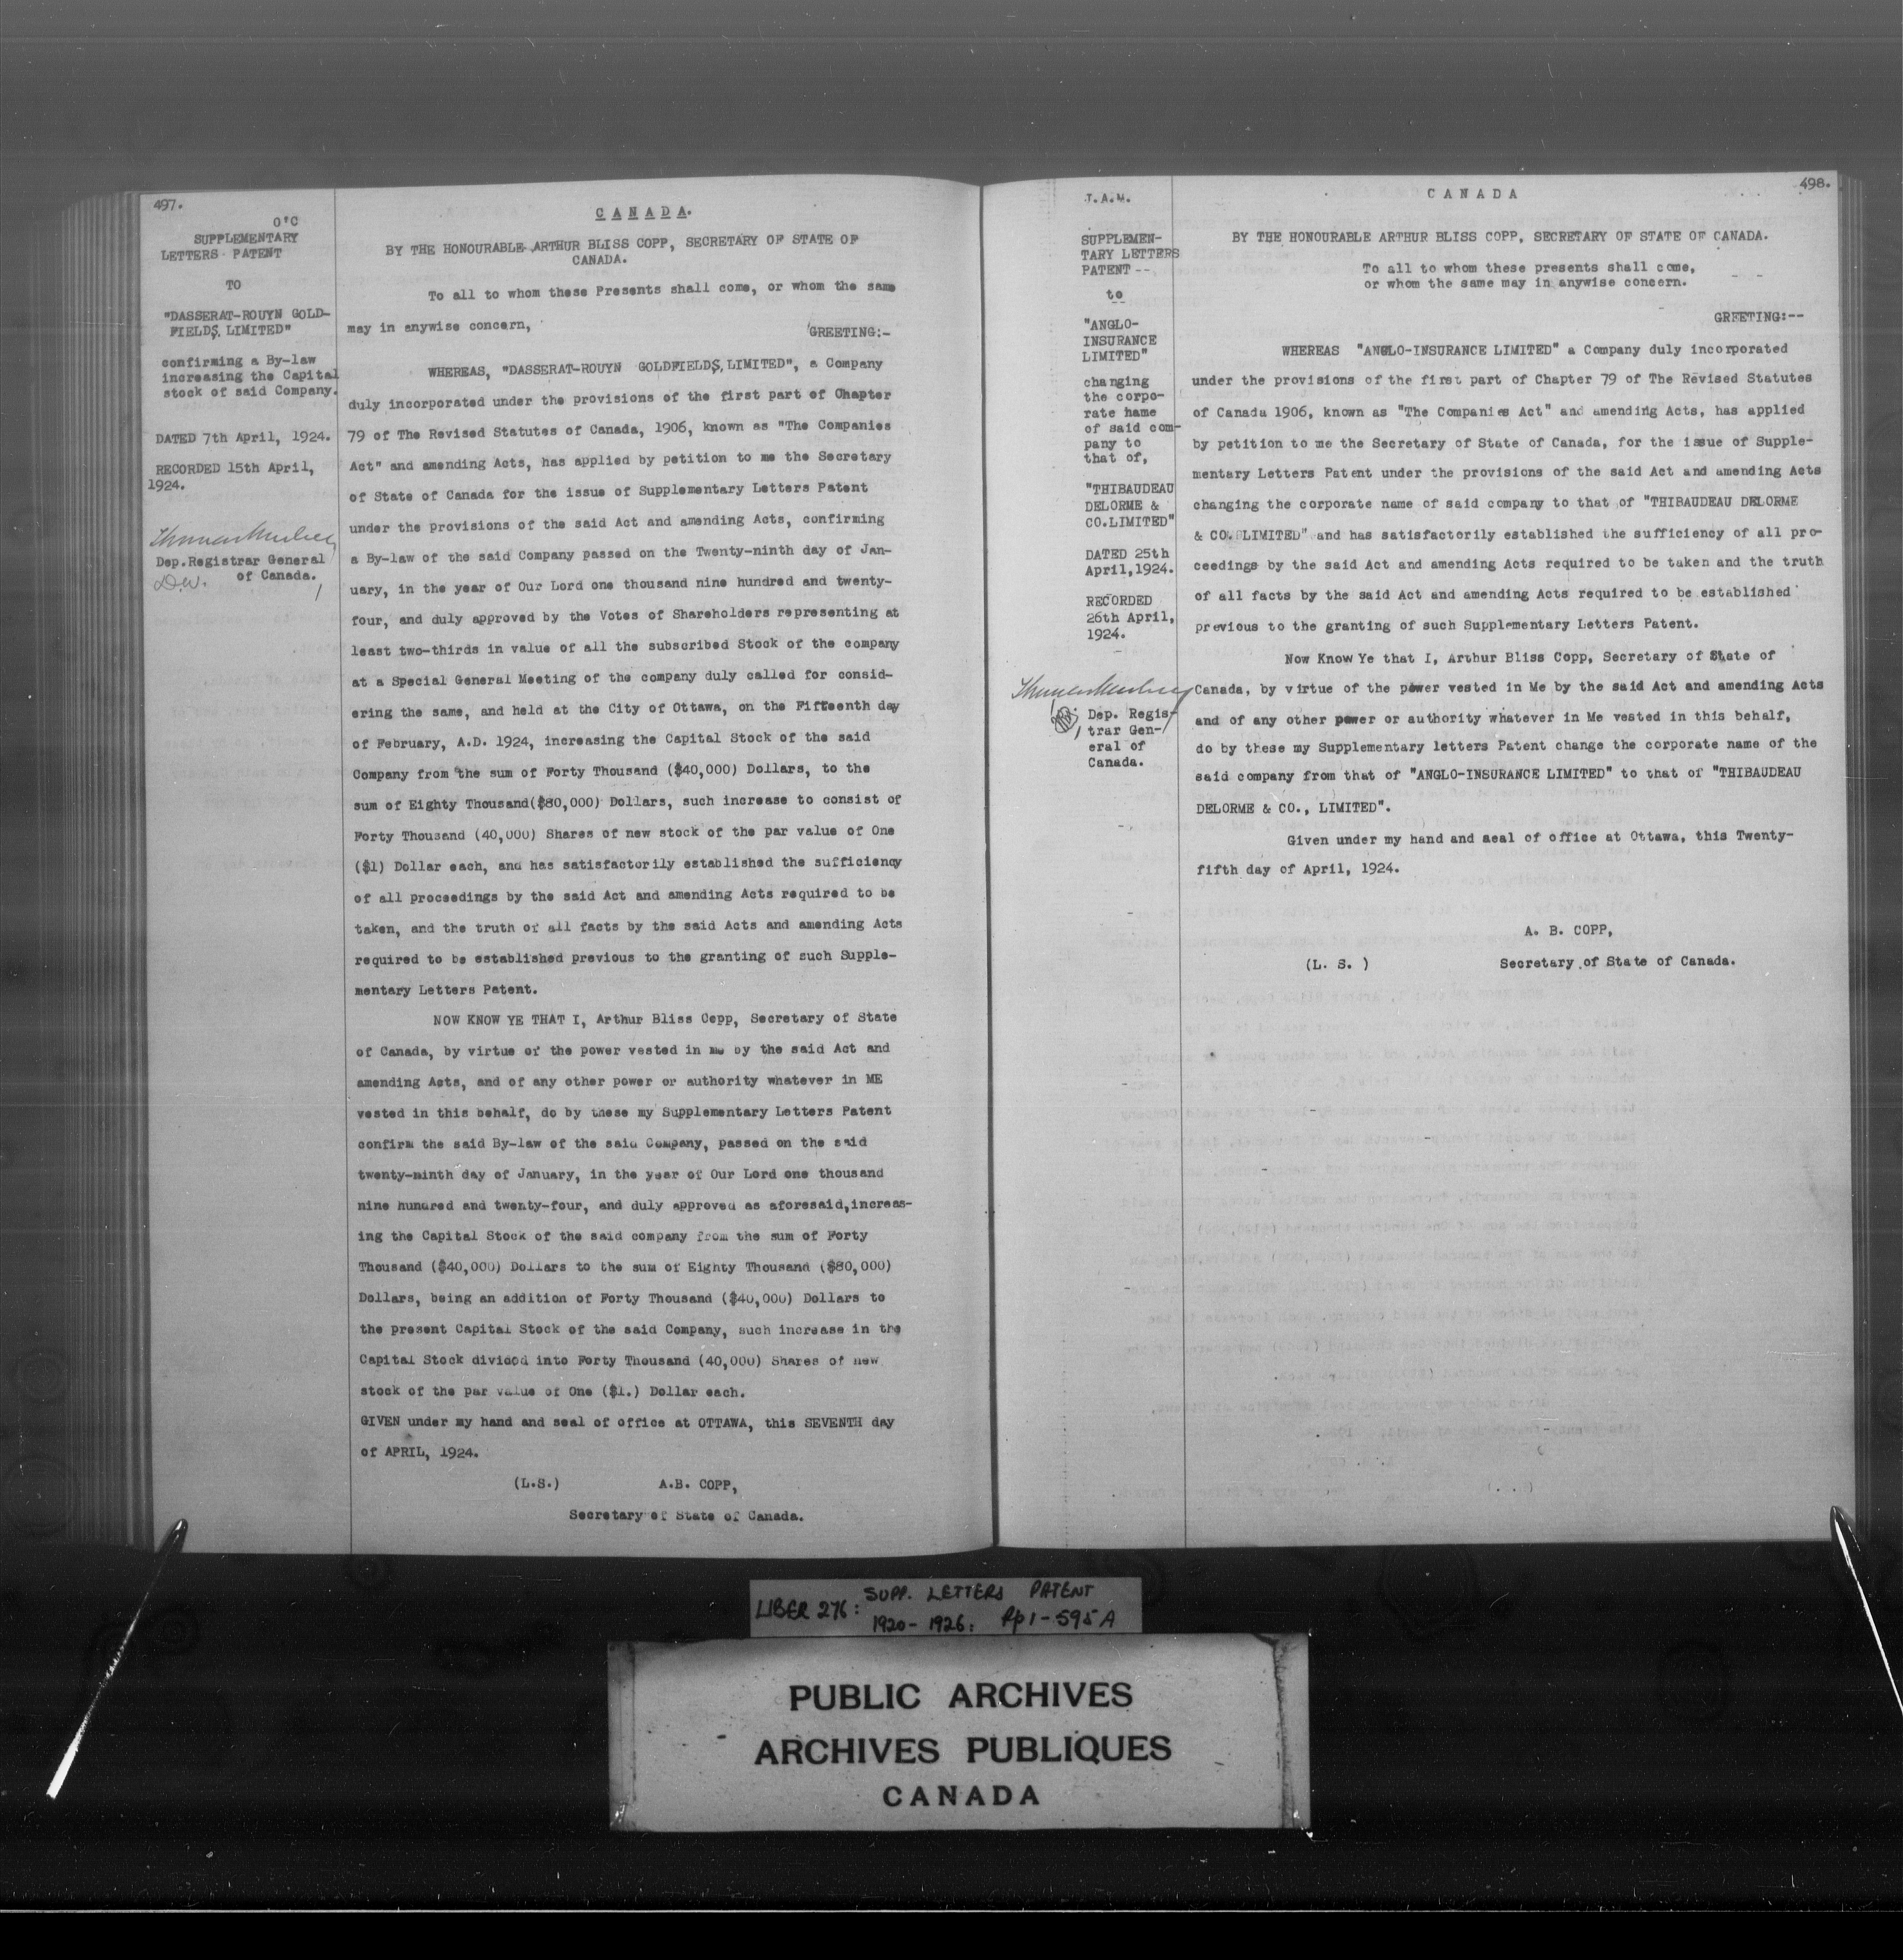 497.
O'C
SUPPLEMENTARY
LETTERS PATENT
TO
"DASSERAT-ROUYN GOLD-
FIELDS, LIMITED"
confirming a By-law
increasing the Capital
stock of said Company.
DATED 7th April, 1924.
RECORDED 15th April,
1924.
Dep.Registrar General
of Canada.
CANADA.
BY THE HONOURABLE ARTHUR BLISS COPP, SECRETARY OF STATE OF
CANADA.
To all to whom these Presents shall come, or whom the same
may in anywise concern,
GREETING:-
WHEREAS, "DASSERAT-ROUYN GOLDFIELDS, LIMITED", a Company
duly incorporated under the provisions of the first part of Chapter
79 of The Revised Statutes of Canada, 1906, known as "The Companies
Act" and amending Acts, has applied by petition to me the Secretary
of State of Canada for the issue of Supplementary Letters Patent
under the provisions of the said Act and amending Acts, confirming
a By-law of the said Company passed on the Twenty-ninth day of Jan-
uary, in the year of Our Lord one thousand nine hundred and twenty-
four, and duly approved by the Votes of Shareholders representing at
least two-thirds in value of all the subscribed Stock of the company
at a Special General Meeting of the company duly called for consid-
ering the same, and held at the City of Ottawa, on the Fifteenth day
of February, A.D. 1924, increasing the Capital Stock of the said
Company from the sum of Forty Thousand ($40,000) Dollars, to the
sum of Eighty Thousand($80,000) Dollars, such increase to consist of
Forty Thousand (40,000) Shares of new stock of the par value of One
($1) Dollar each, and has satisfactorily established the sufficiency
of all proceedings by the said Act and amending Acts required to be
taken, and the truth of all facts by the said Acts and amending Acts
required to be established previous to the granting of such Supple-
mentary Letters Patent.
NOW KNOW YE THAT I, Arthur Bliss Copp, Secretary of State
of Canada, by virtue of the power vested in me by the said Act and
amending Acts, and of any other power or authority whatever in ME
vested in this behalf, do by these my Supplementary Letters Patent
confirm the said By-law of the said Company, passed on the said
twenty-ninth day of January, in the year of Our Lord one thousand
nine hundred and twenty-four, and duly approved as aforesaid,increas-
ing the Capital Stock of the said company from the sum of Forty
Thousand ($40,000) Dollars to the sum of Eighty Thousand ($80,000)
Dollars, being an addition of Forty Thousand ($40,000) Dollars to
the present Capital Stock of the said Company, such increase in the
Capital Stock divided into Forty Thousand (40,000) Shares of new
stock of the par value of One ($1.) Dollar each.
GIVEN under my hand and seal of office at OTTAWA, this SEVENTH day
of APRIL, 1924.
(L.S.) A.B. COPP,
Secretary of State of Canada.
498.
T.A.M.
SUPPLEMEN-
TARY LETTERS
PATENT --
to
"ANGLO-
INSURANCE
LIMITED"
changing
the corpo-
rate name
of said com-
pany to
that of,
"THIBAUDEAU
DELORME &
CO.LIMITED"
DATED 25th
April,1924.
RECORDED
26th April,
1924.
Dep. Regis-
trar Gen-
eral of
Canada.
CANADA
BY THE HONOURABLE ARTHUR BLISS COPP, SECRETARY OF STATE OF CANADA.
To all to whom these presents shall come,
or whom the same may in anywise concern.
GREETING:--
WHEREAS "ANGLO-INSURANCE LIMITED" a Company duly incorporated
under the provisions of the first part of Chapter 79 of The Revised Statutes
of Canada 1906, known as "The Companies Act" and amending Acts, has applied
by petition to me the Secretary of State of Canada, for the issue of Supple-
mentary Letters Patent under the provisions of the said Act and amending Acts
changing the corporate name of said company to that of "THIBAUDEAU DELORME
& CO. LIMITED" and has satisfactorily established the sufficiency of all pro-
ceedings by the said Act and amending Acts required to be taken and the truth
of all facts by the said Act and amending Acts required to be established
previous to the granting of such Supplementary Letters Patent.
Now Know Ye that I, Arthur Bliss Copp, Secretary of State of
Canada, by virtue of the power vested in Me by the said Act and amending Acts
and of any other power or authority whatever in Me vested in this behalf,
do by these my Supplementary letters Patent change the corporate name of the
said company from that of "ANGLO-INSURANCE LIMITED" to that of "THIBAUDEAU
DELORME & CO., LIMITED".
Given under my hand and seal of office at Ottawa, this Twenty-
fifth day of April, 1924.
A. B. COPP,
(L. S. ) Secretary of State of Canada.
LIBER 276: SUPP. LETTERS PATENT
1920-1926: Pp 1-595A
PUBLIC ARCHIVES
ARCHIVES PUBLIQUES
CANADA